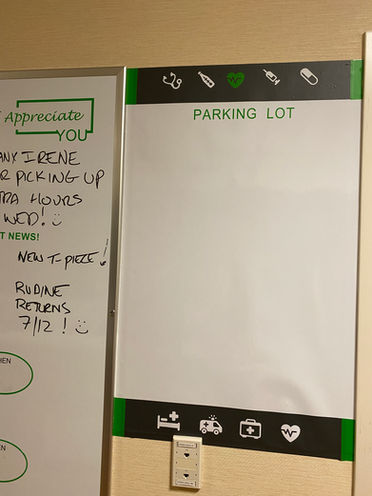 Appreciate
YOU
IRENE
PICKING UP
HOURS
WED! :)
T NEWS!
NEW T-PIECE!
RUDINE
RETURNS
7/12 ! :)
HEN
PARKING LOT